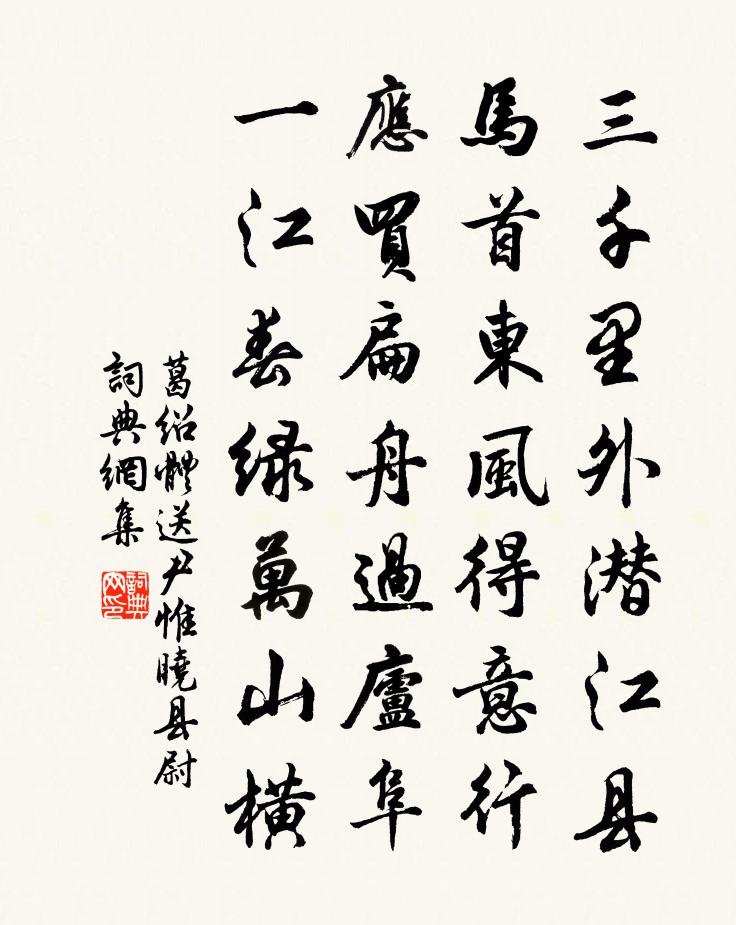 三千里外潜江县
馬首東風得意行
應買扁舟過廬阜
一江春緑萬山横
葛紹體送尹惟曉县尉
詞典網集
詞典网印